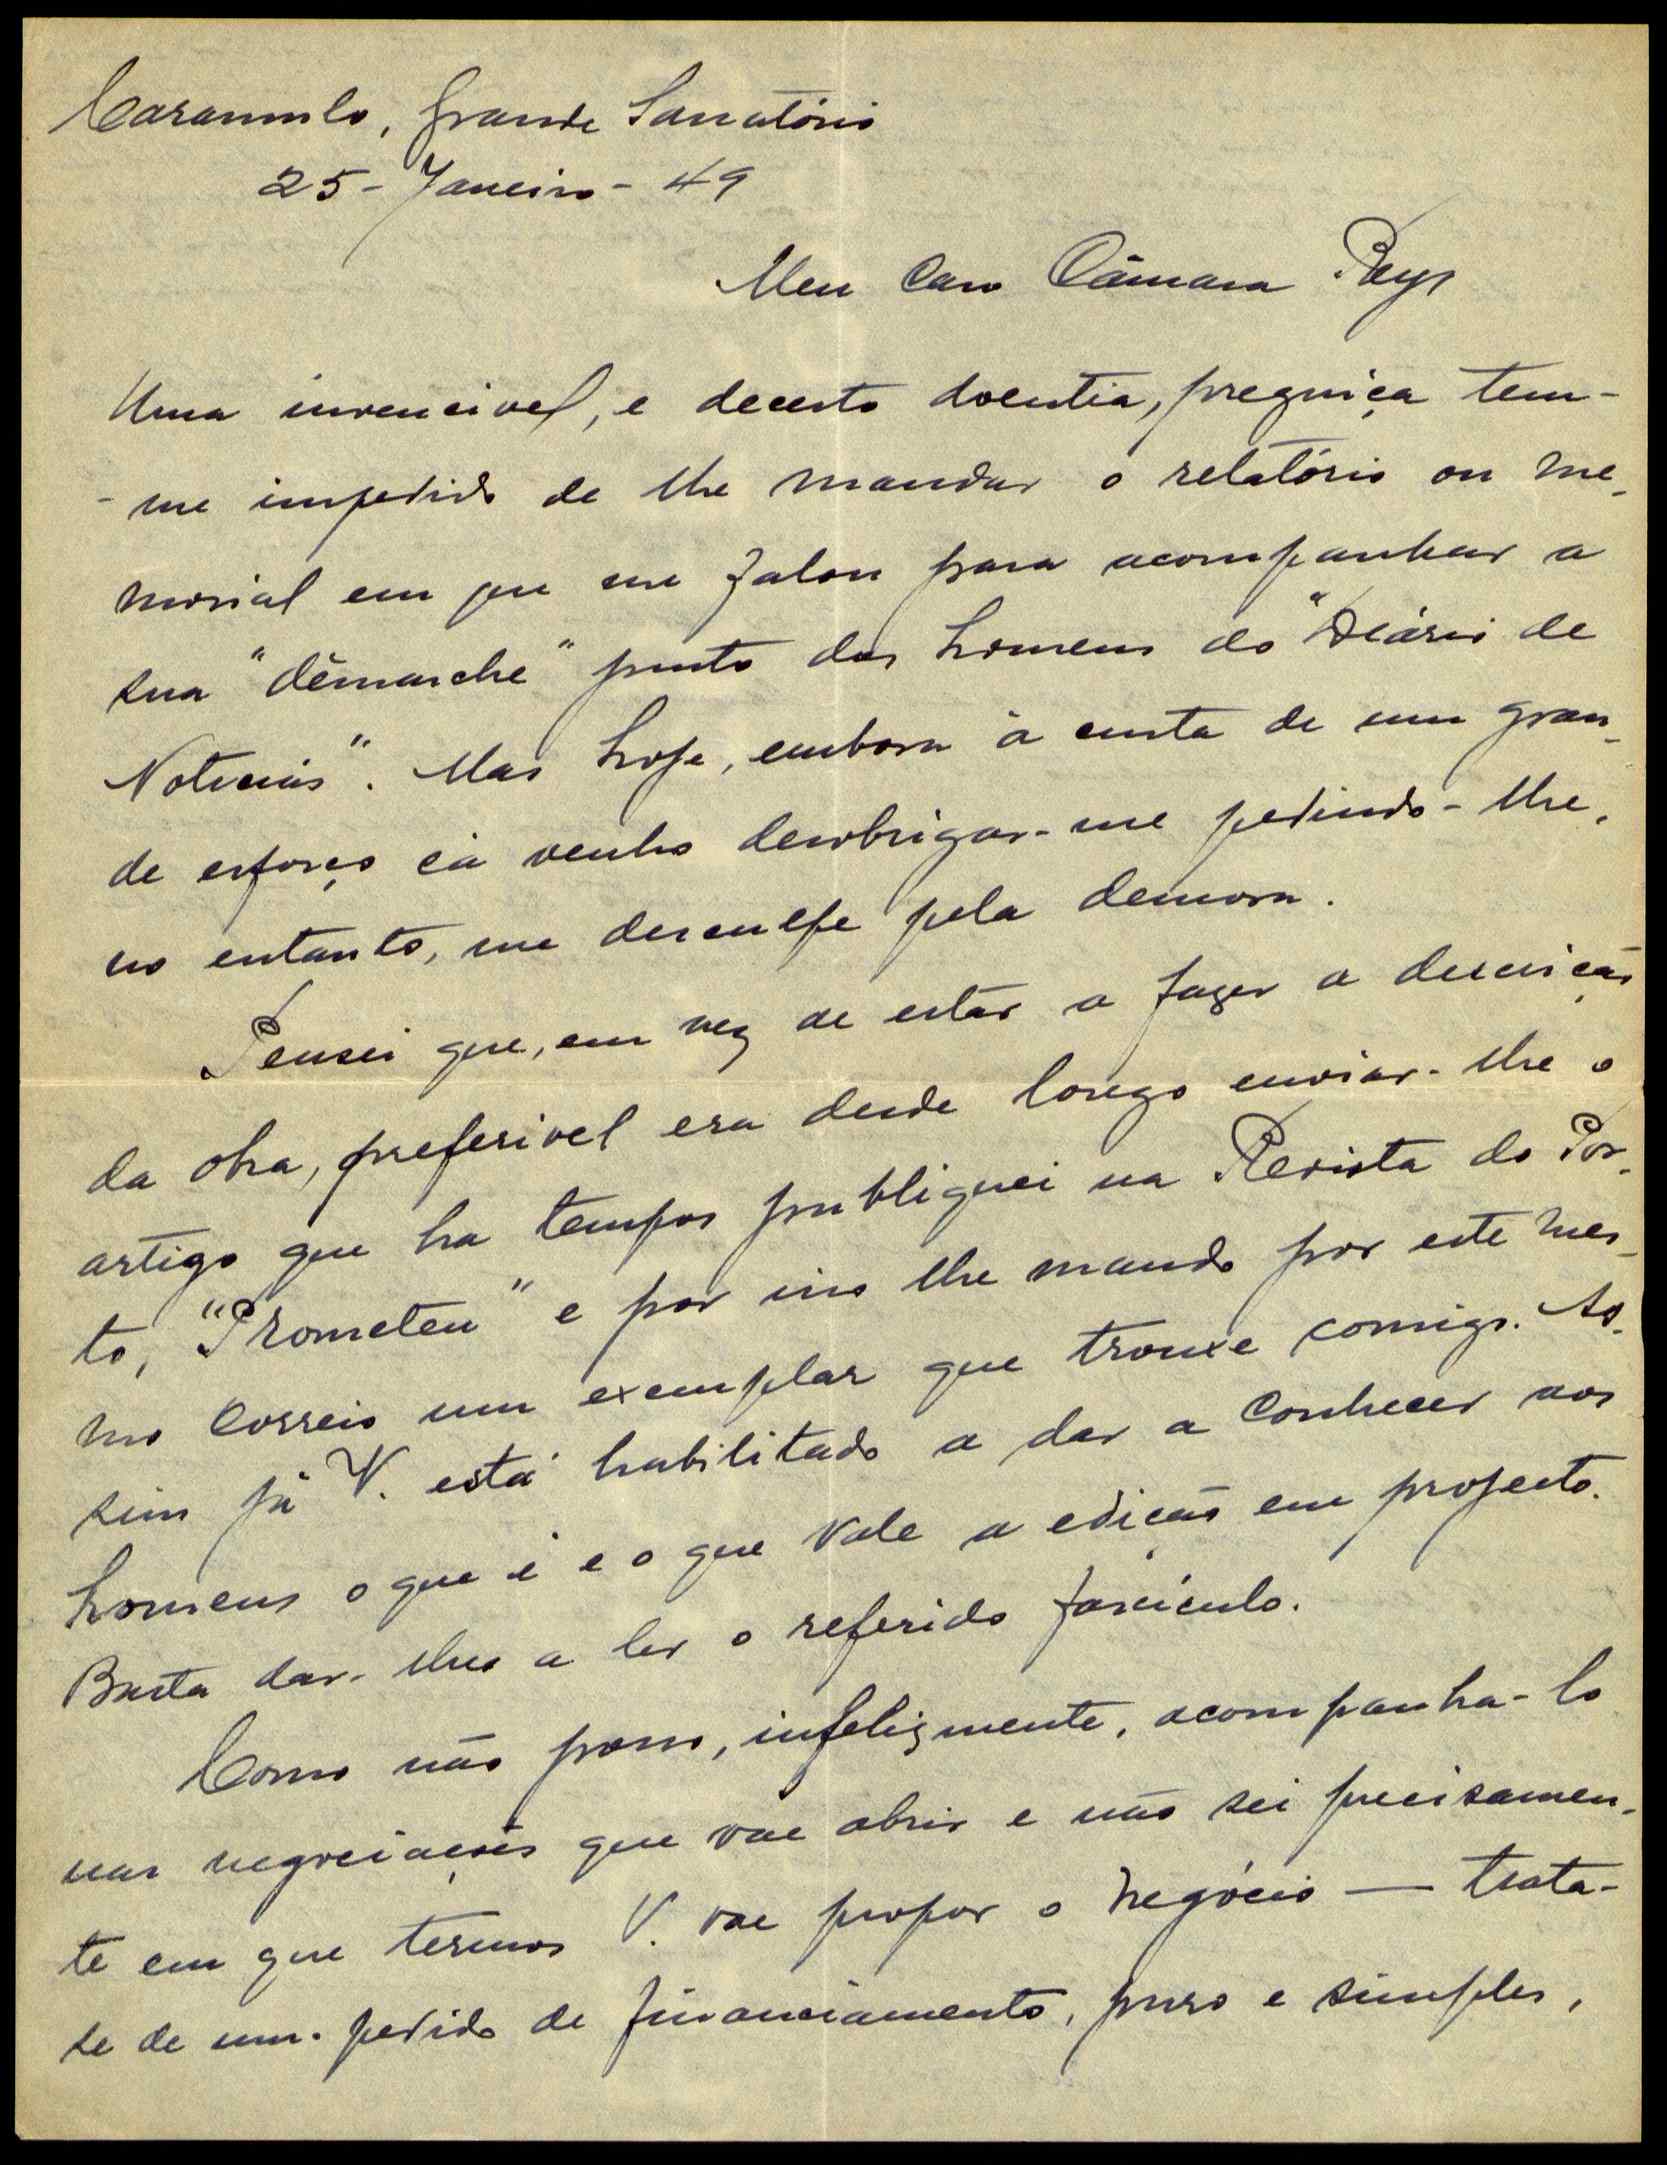 Caramulo, Grande Sanatório
25 - Janeiro - 49
Meu Caro Câmara Reys
Uma invencivel, e decerto doentia, preguiça tem-
-me impedido de lhe mandar o relatório ou me-
morial em que me falou para acompanhar a
sua "démarche" junto dos homens do "Diário de
Noticias". Mas hoje, embora à custa de um gran-
de esforço cá venho desobrigar-me pedindo-lhe,
no entanto, me desculpe pela demora.
Pensei que, em vez de estar a fazer a descrição
da obra, preferivel era desde longo enviar-lhe o
artigo que ha tempos publiquei na Revista do Por-
to, "Prometeu" e por isso lhe mando por este mes-
mo correio um exemplar que trouxe comigo. As-
sim já V. está habilitado a dar a conhecer aos
homens o que é e o que vale a edição em projecto.
Basta dar-lhes a ler o referido fascículo.
Como não posso, infelizmente, acompanha-lo
nas negociações que vae abrir e não sei precisamen-
te em que termos V. vae propor o negócio — trata-
se de um pedido de financiamento, puro e simples,